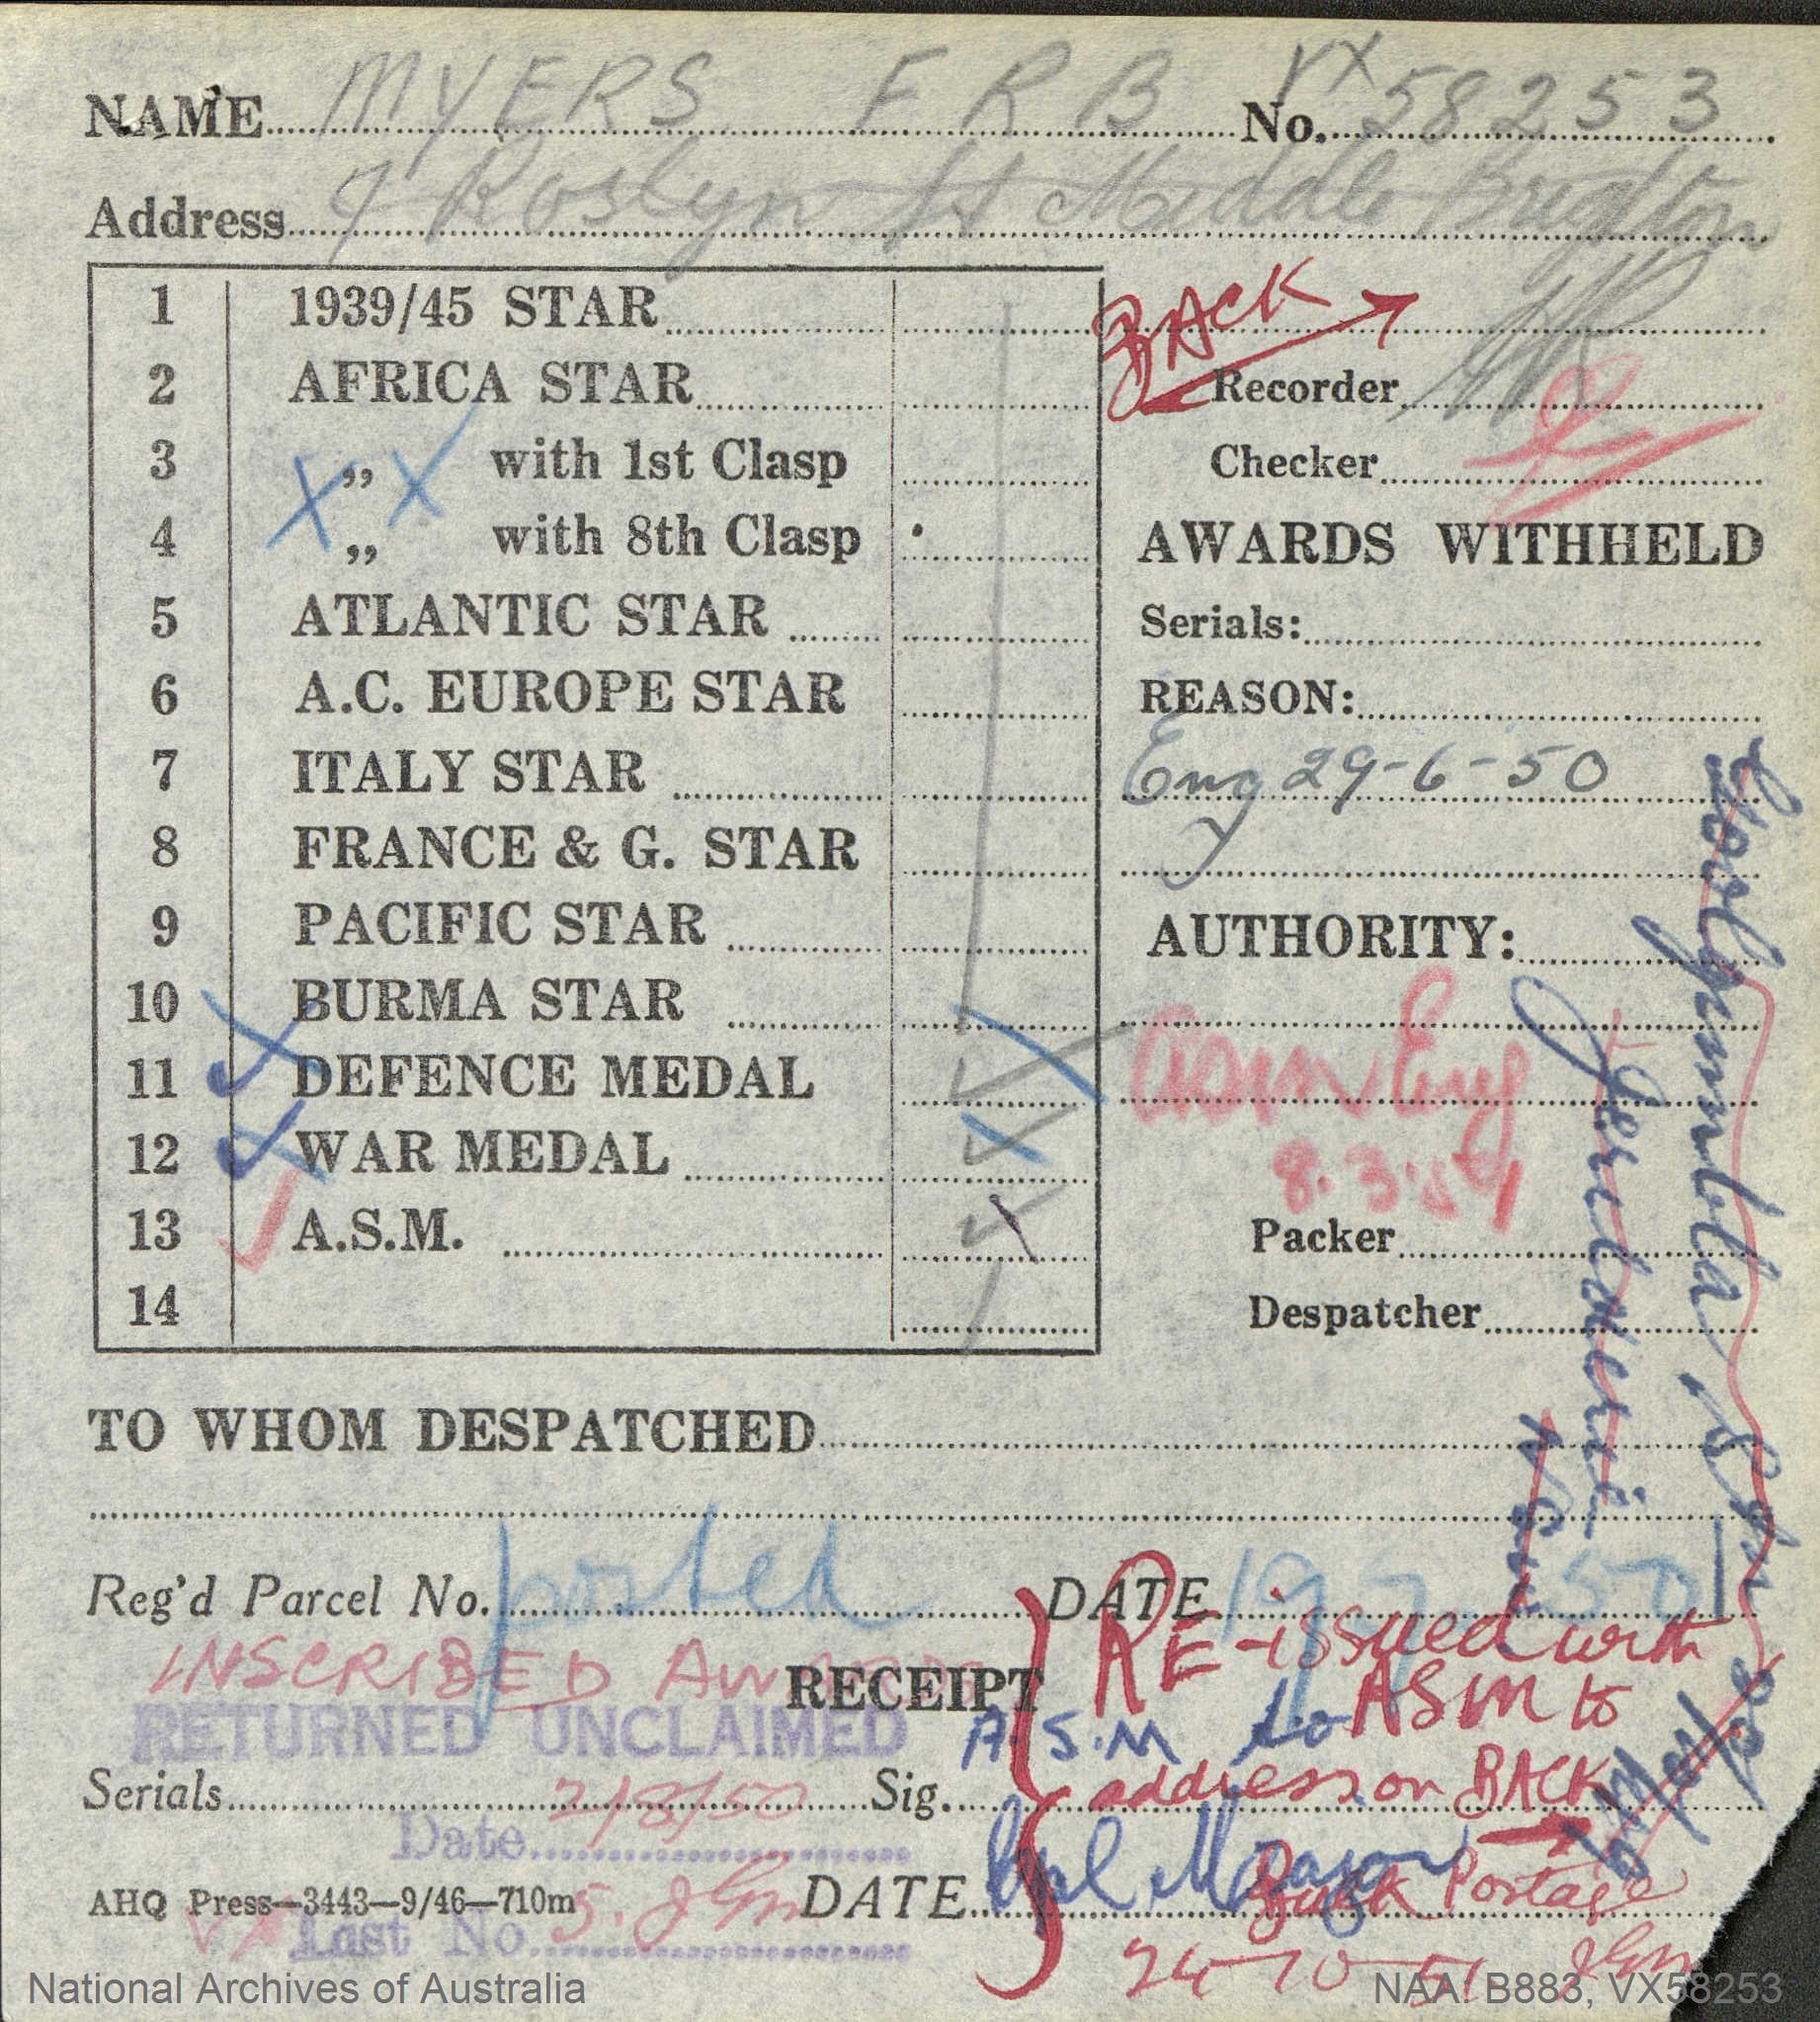 NAME MYERS F R B No. VX58253
Address Roslyn St Middle Brighton
1 1939/45 STAR
BACK
2 AFRICA STAR
Recorder
3 „ with 1st Clasp
Checker
4 „ with 8th Clasp
AWARDS WITHHELD
5 ATLANTIC STAR
Serials:
6 A.C. EUROPE STAR
REASON:
7 ITALY STAR
Eng 29-6-50
8 FRANCE & G. STAR
9 PACIFIC STAR
AUTHORITY:
10 BURMA STAR
11 DEFENCE MEDAL
ASM Eng
12 WAR MEDAL
8.3.51
13 A.S.M.
Packer
14
Despatcher
Goolgumbla Stn
Jerilderie
TO WHOM DESPATCHED
Reg'd Parcel No. posted DATE 19 7 50
INSCRIBED
RE-issued with
RECEIPT
ASM to
RETURNED UNCLAIMED
A.S.M to
address on BACK
Serials Sig.
Date 2/8/50
Bulk Postage
AHQ Press—3443—9/46—710m
DATE
Last No.
24-10-51
National Archives of Australia
NAA: B883, VX58253